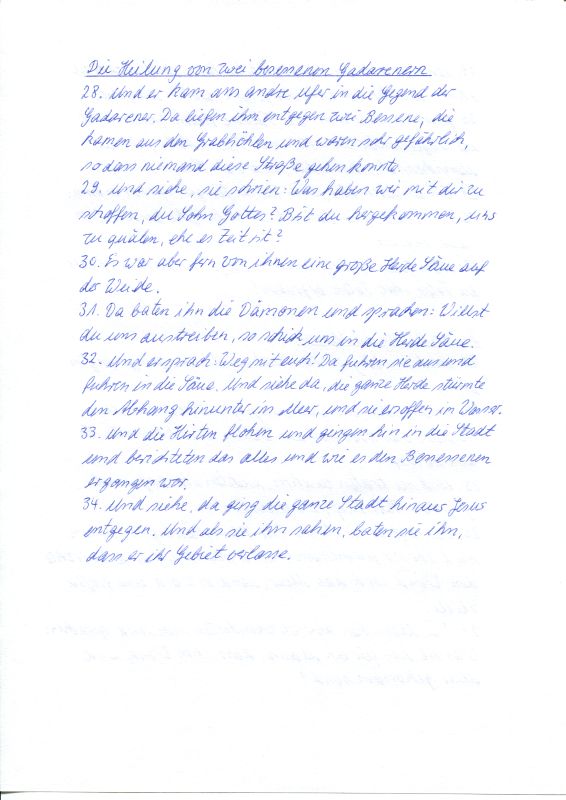 Die Heilung von zwei besessenen Gadarenern
28. Und er kam ans andre Ufer in die Gegend der
Gadarener. Da liefen ihm entgegen zwei Bessene, die
kamen aus den Grabhöhlen und waren sehr gefährlich,
sodass niemand diese Straße gehen konnte.
29. Und siehe, sie schrien: Was haben wir mit dir zu
schaffen, du Sohn Gottes? Bist du hergekommen, uns
zu quälen, ehe es Zeit ist?
30. Es war aber fern von ihnen eine große Herde Säue auf
der Weide.
31. Da baten ihn die Dämonen und sprachen: Willst
du uns austreiben, so schick uns in die Herde Säue.
32. Und er sprach: Weg mit euch! Da fuhren sie aus und
fuhren in die Säue. Und siehe da, die ganze Herde stürmte
den Abhang hinunter im Meer, und sie ersoffen im Wasser.
33. Und die Hirten flohen und gingen hin in die Stadt
und berichteten das alles und wie es den Besessenen
ergangen war.
34. Und siehe, da ging die ganze Stadt hinaus Jesus
entgegen. Und als sie ihn sahen, baten sie ihn,
dass er ihr Gebiet verlasse.